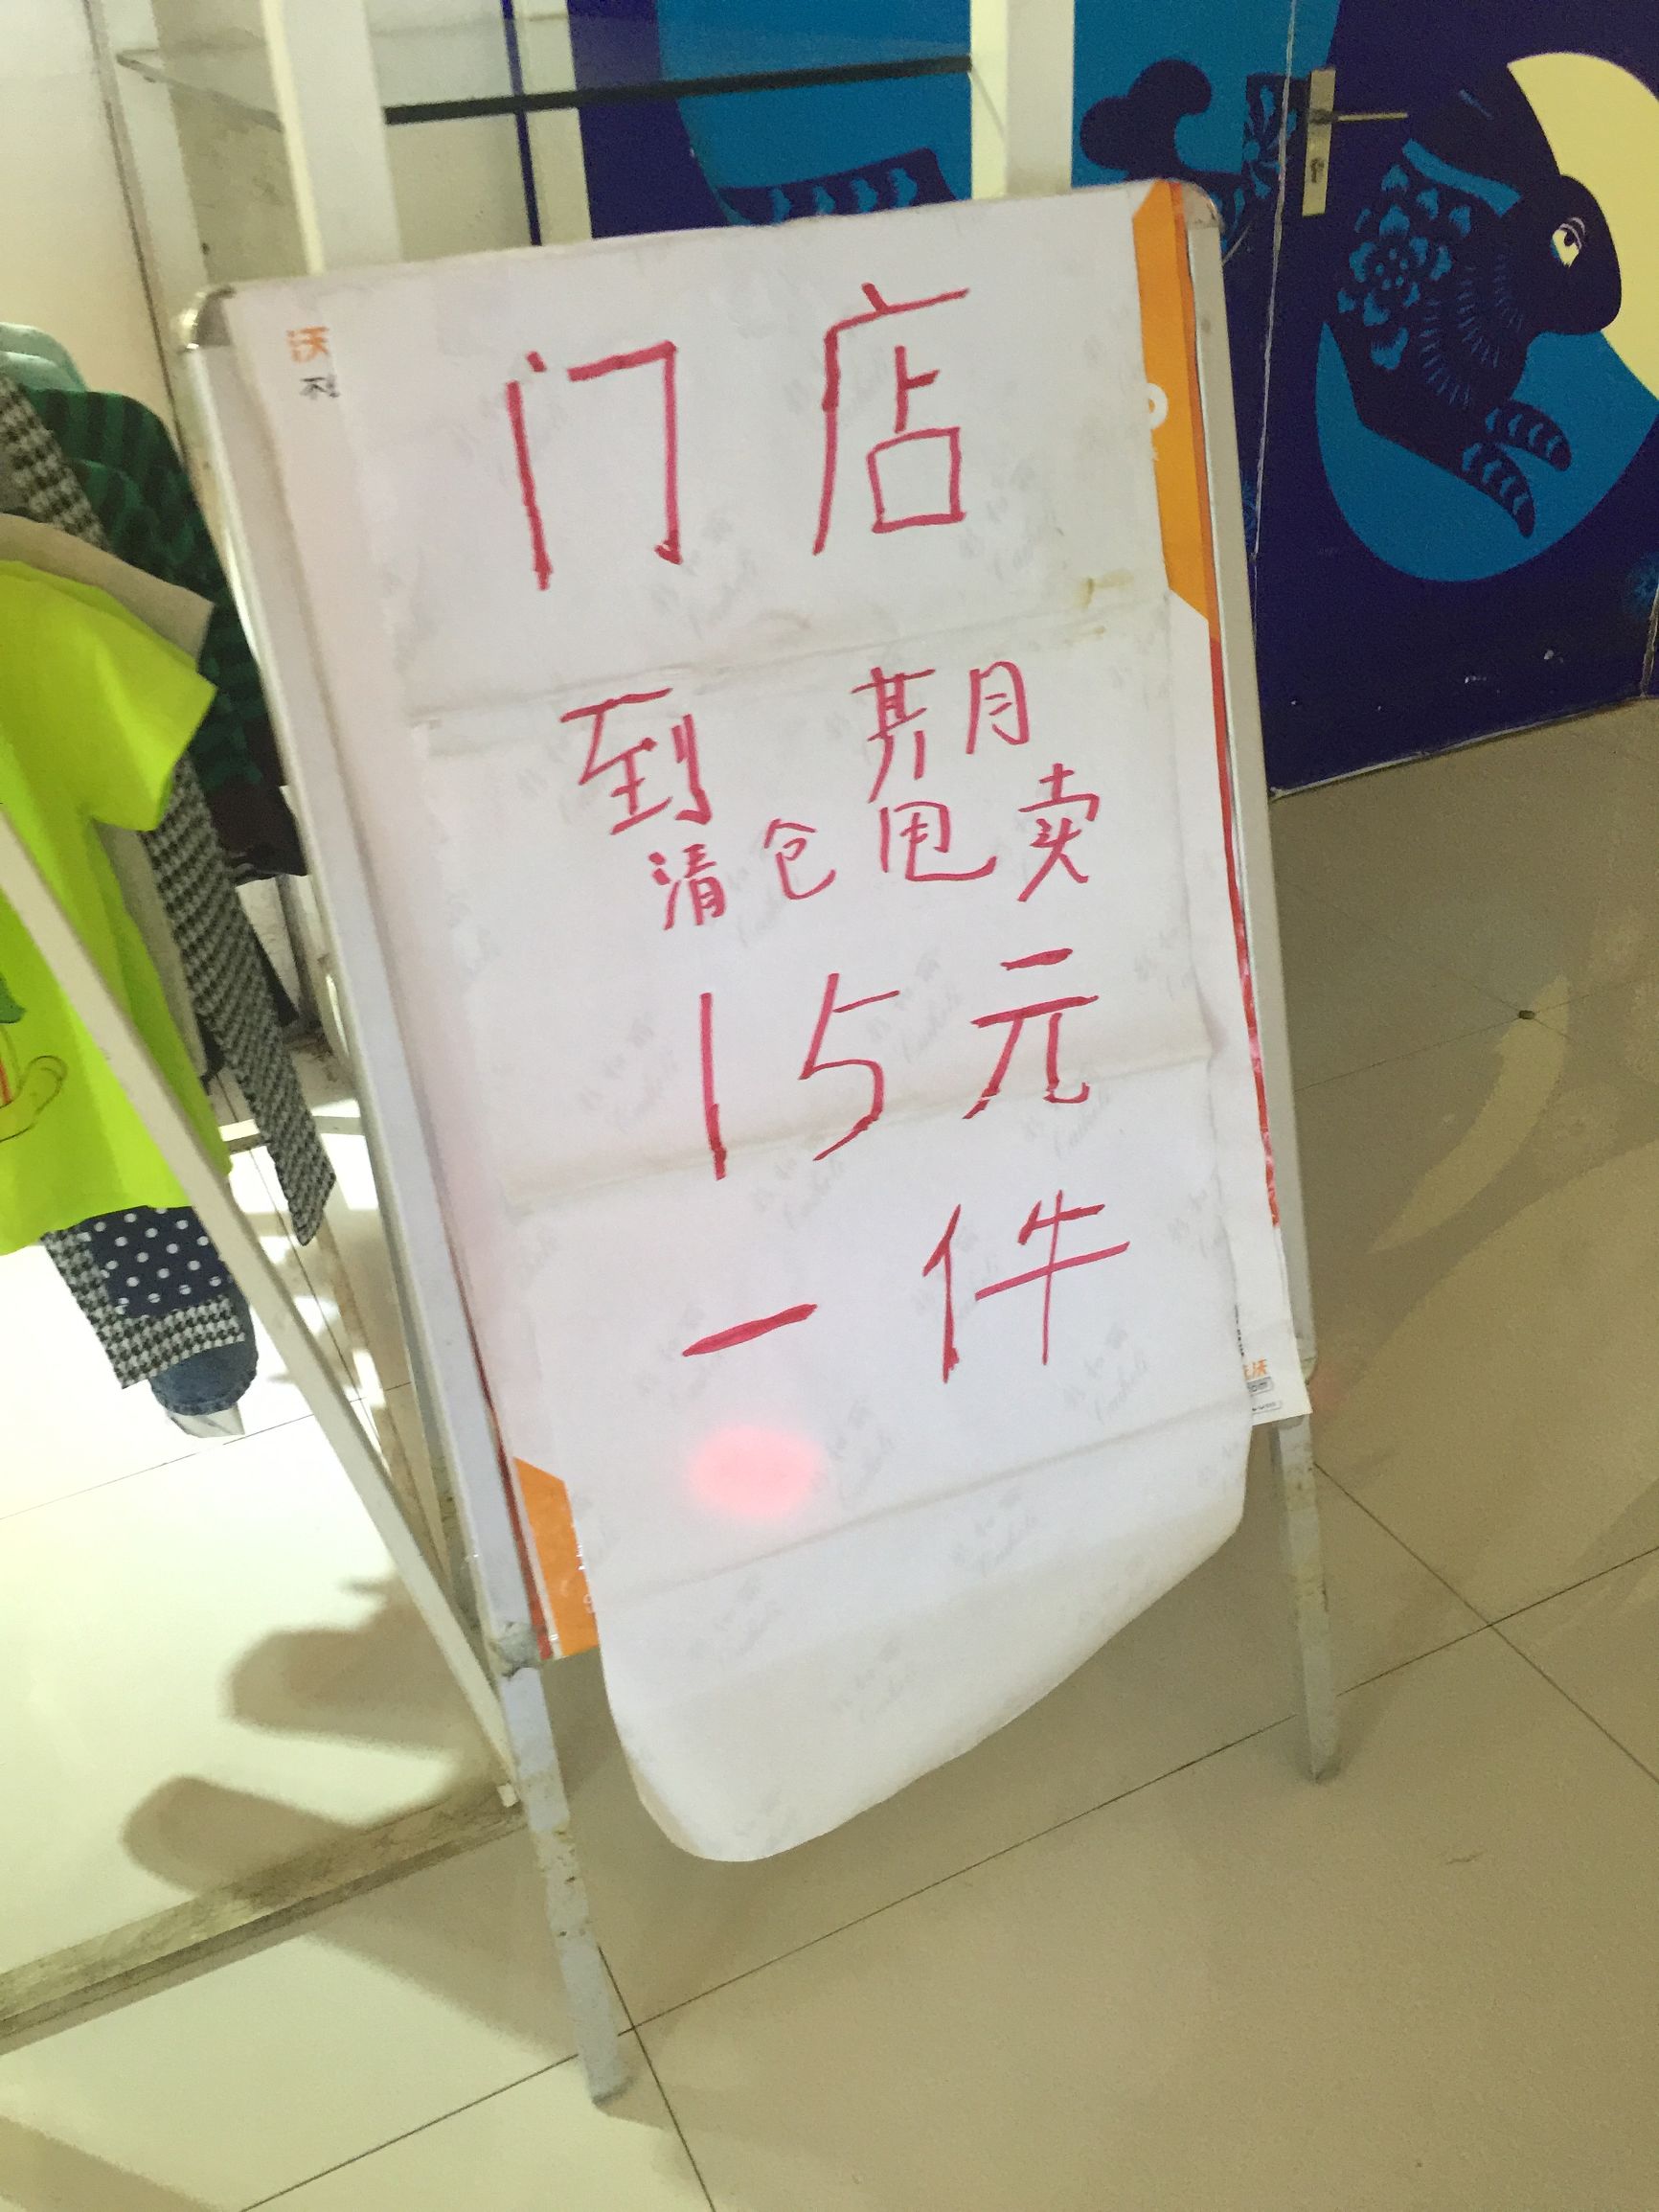 沃
门店
到期
清仓甩卖
15元
一件